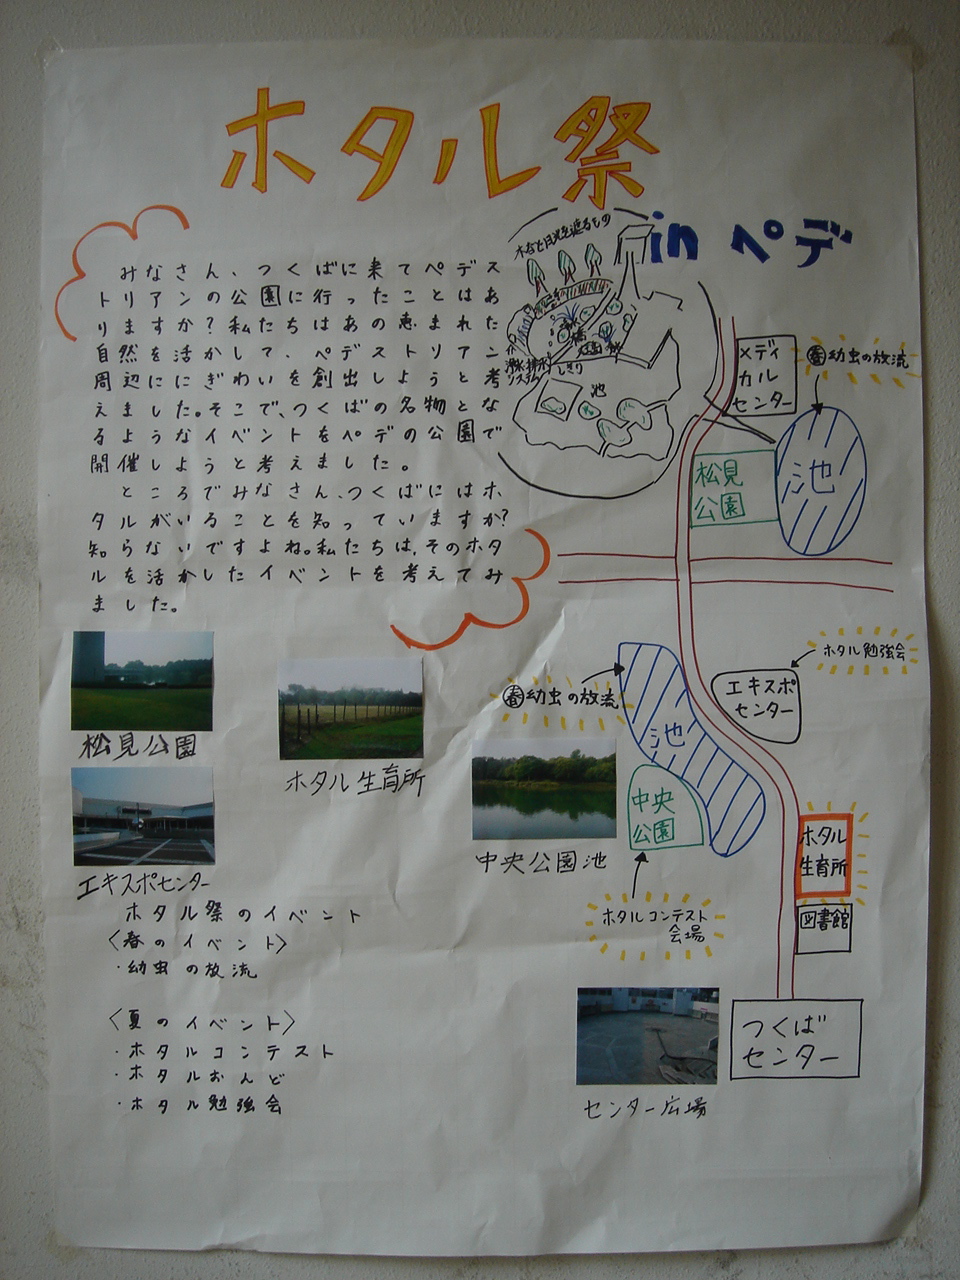 ホタル祭
in ペデ
みなさん、つくばに来てペデス
トリアンの公園に行ったことはあ
りますか？私たちはあの恵まれた
自然を活かして、ペデストリアン
周辺ににぎわいを創出しようと考
えました。そこで、つくばの名物とな
るようなイベントをペデの公園で
開催しようと考えました。
ところでみなさん、つくばにはホ
タルがいることを知っていますか？
知らないですよね。私たちは、そのホタ
ルを活かしたイベントを考えてみ
ました。
木など日光を遮るもの
しきり
池
メディ
カル
センター
春幼虫の放流
松見
公園
池
ホタル勉強会
エキスポ
センター
春幼虫の放流
池
中央
公園
ホタル
生育所
図書館
ホタルコンテスト
会場
つくば
センター
松見公園
ホタル生育所
エキスポセンター
中央公園池
センター広場
ホタル祭のイベント
〈春のイベント〉
・幼虫の放流
〈夏のイベント〉
・ホタルコンテスト
・ホタルおんど
・ホタル勉強会